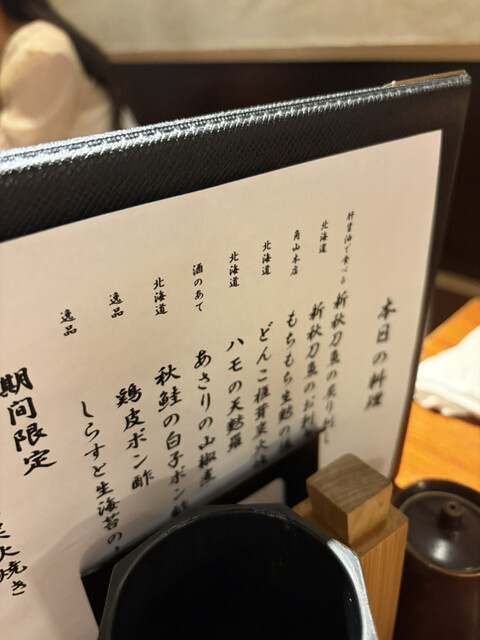 本日の料理
肝醤油で食べる 新秋刀魚の炙り刺し
北海道 新秋刀魚のお刺
角山本店 もちもち生麩の
北海道 どんこ椎茸炭火
北海道 ハモの天麩羅
酒のあて あさりの山椒煮
北海道 秋鮭の白子ポン酢
逸品 鶏皮ポン酢
逸品 しらすと生海苔の
期間限定
火焼き